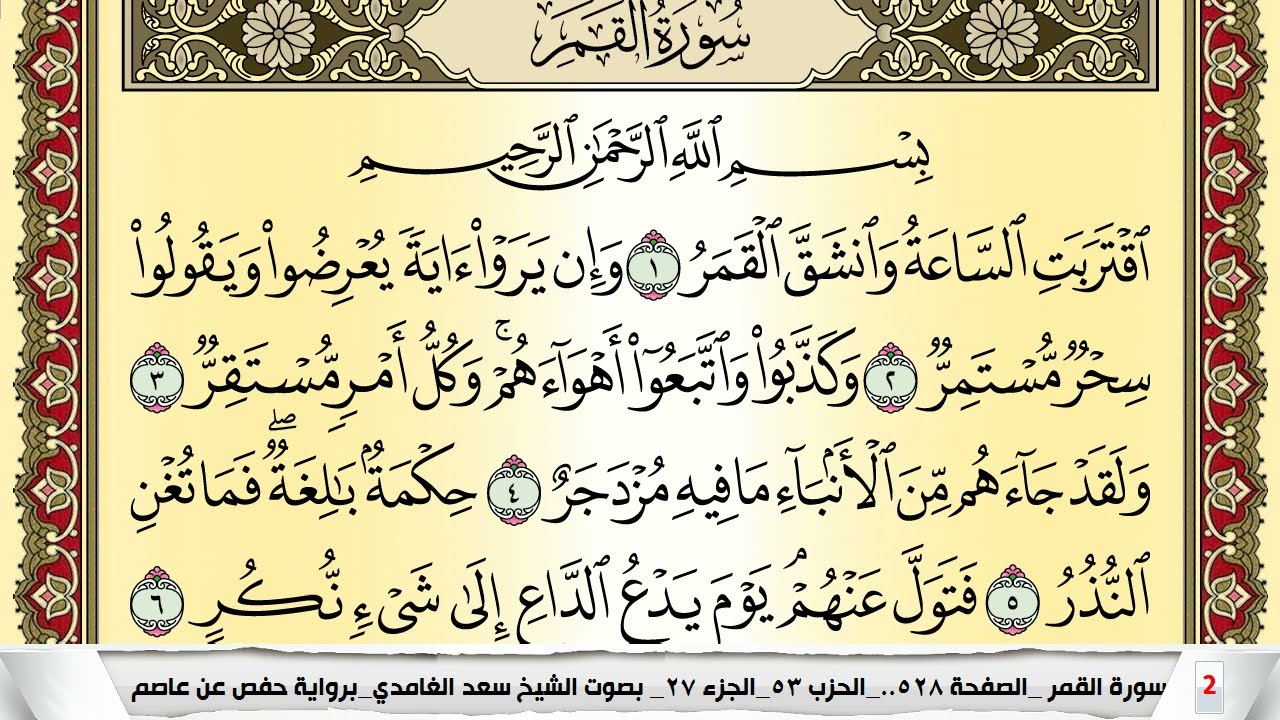 سُورَةُ القَمَرِ
بِسْمِ ٱللَّهِ ٱلرَّحْمَٰنِ ٱلرَّحِيمِ
ٱقْتَرَبَتِ ٱلسَّاعَةُ وَٱنشَقَّ ٱلْقَمَرُ ١ وَإِن يَرَوْا۟ ءَايَةً يُعْرِضُوا۟ وَيَقُولُوا۟
سِحْرٌ مُّسْتَمِرٌّ ٢ وَكَذَّبُوا۟ وَٱتَّبَعُوٓا۟ أَهْوَآءَهُمْ ۚ وَكُلُّ أَمْرٍ مُّسْتَقِرٌّ ٣
وَلَقَدْ جَآءَهُم مِّنَ ٱلْأَنۢبَآءِ مَا فِيهِ مُزْدَجَرٌ ٤ حِكْمَةٌۢ بَٰلِغَةٌ ۖ فَمَا تُغْنِ
ٱلنُّذُرُ ٥ فَتَوَلَّ عَنْهُمْ ۘ يَوْمَ يَدْعُ ٱلدَّاعِ إِلَىٰ شَىْءٍ نُّكُرٍ ٦
2 سورة القمر _الصفحة ٥٢٨.._الحزب ٥٣_الجزء ٢٧_ بصوت الشيخ سعد الغامدي_برواية حفص عن عاصم